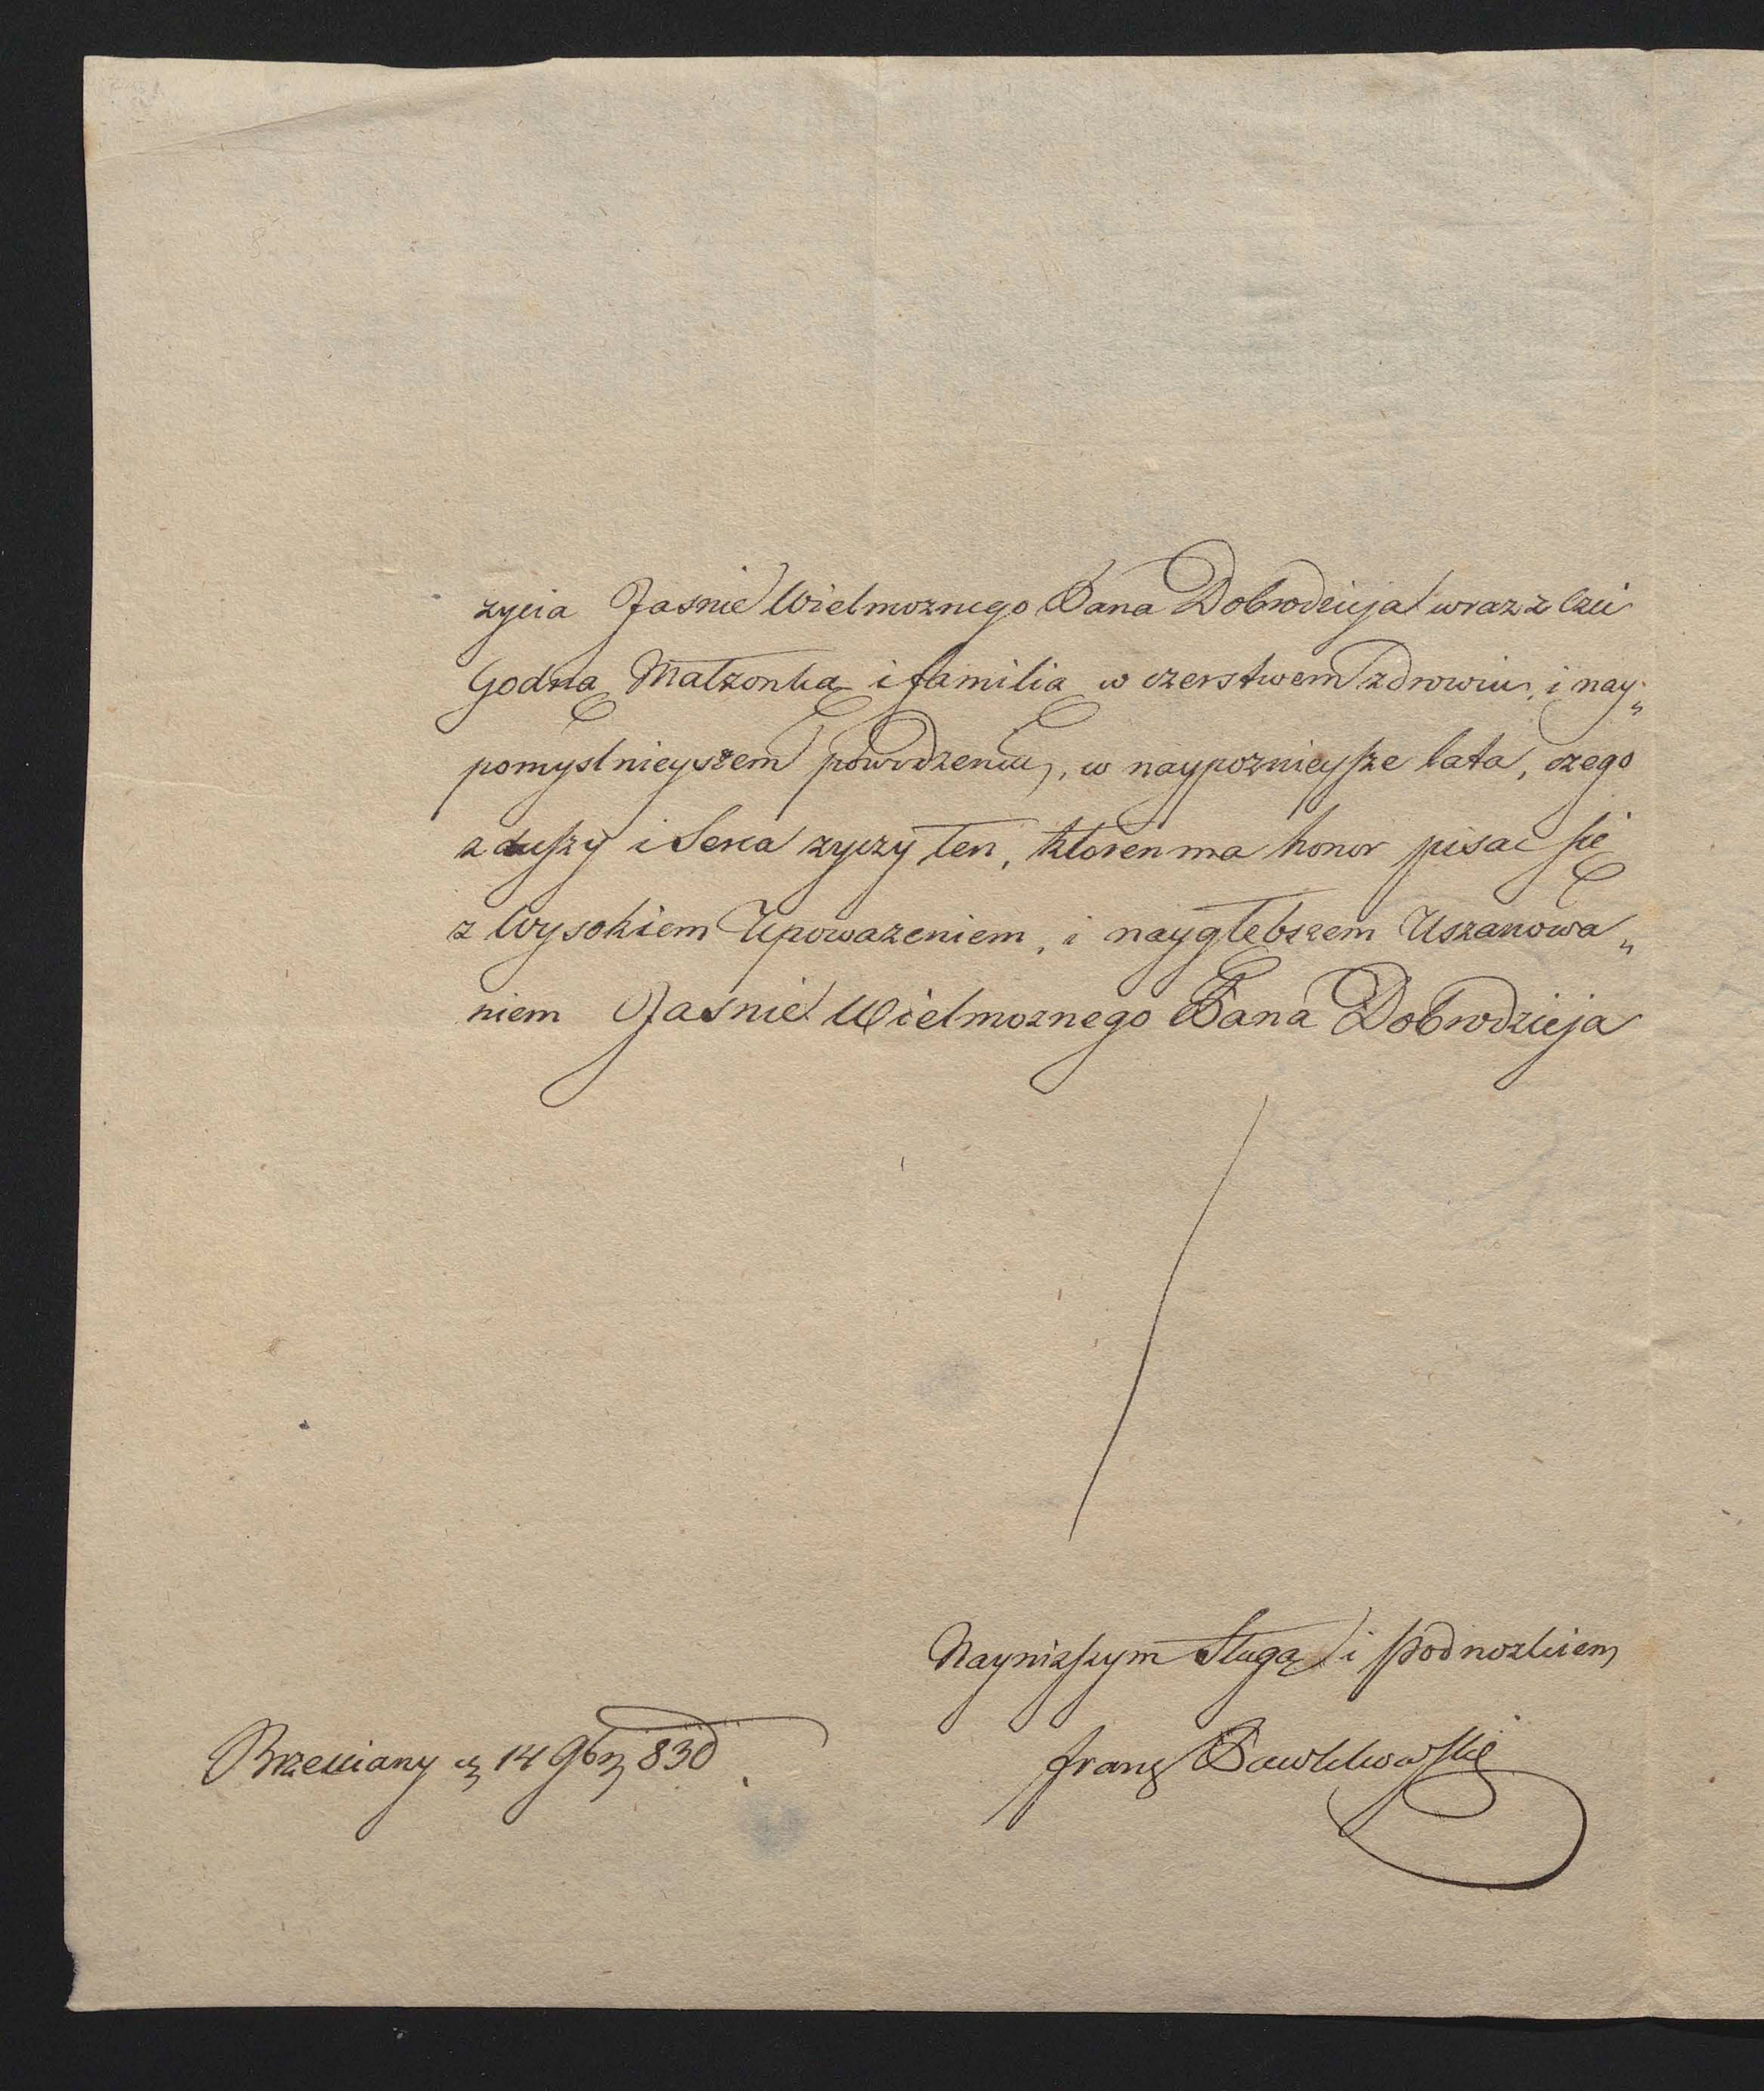 zycia Jasnie Wielmoznego Pana Dobrodzieja wraz z Czci
Godną Małzonką i familią w czerstwem zdrowiu, i nay„
pomyslnieyszem powodzeniu, w naypoznieysze lata, czego
z duszy i Serca zyczy ten, ktoren ma honor pisac się
z Wysokiem Upowazeniem, i naygłębszem Uszanowa„
niem Jasnie Wielmoznego Pana Dobrodzieja
Nayniższym Sługą i podnozkiem
Brzeżany 14 9b 830
Franz Pawlikowski